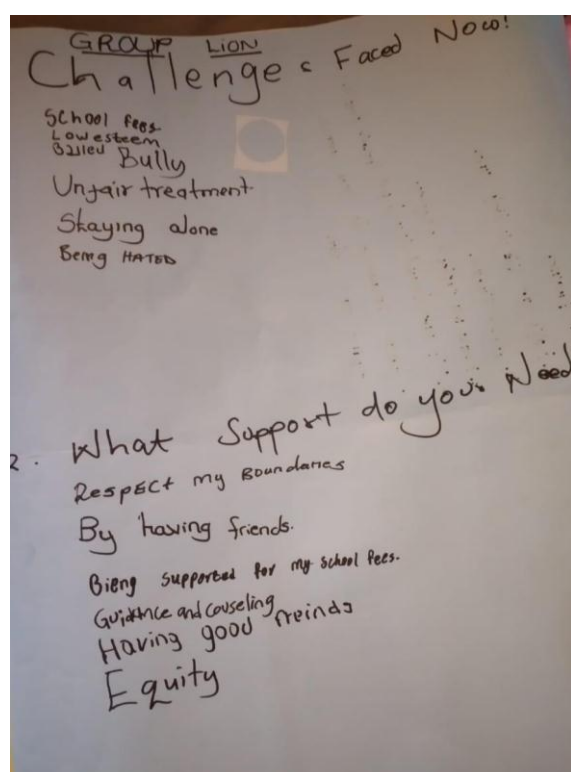 GROUP LION
Challenges Faced Now!
School fees
Low esteem
Bully
Unfair treatment
Staying alone
Being HATED
2. What Support do you Need
Respect my Boundaries
By having friends.
Bieng supported for my school fees.
Guidance and couseling
Having good freinds
Equity